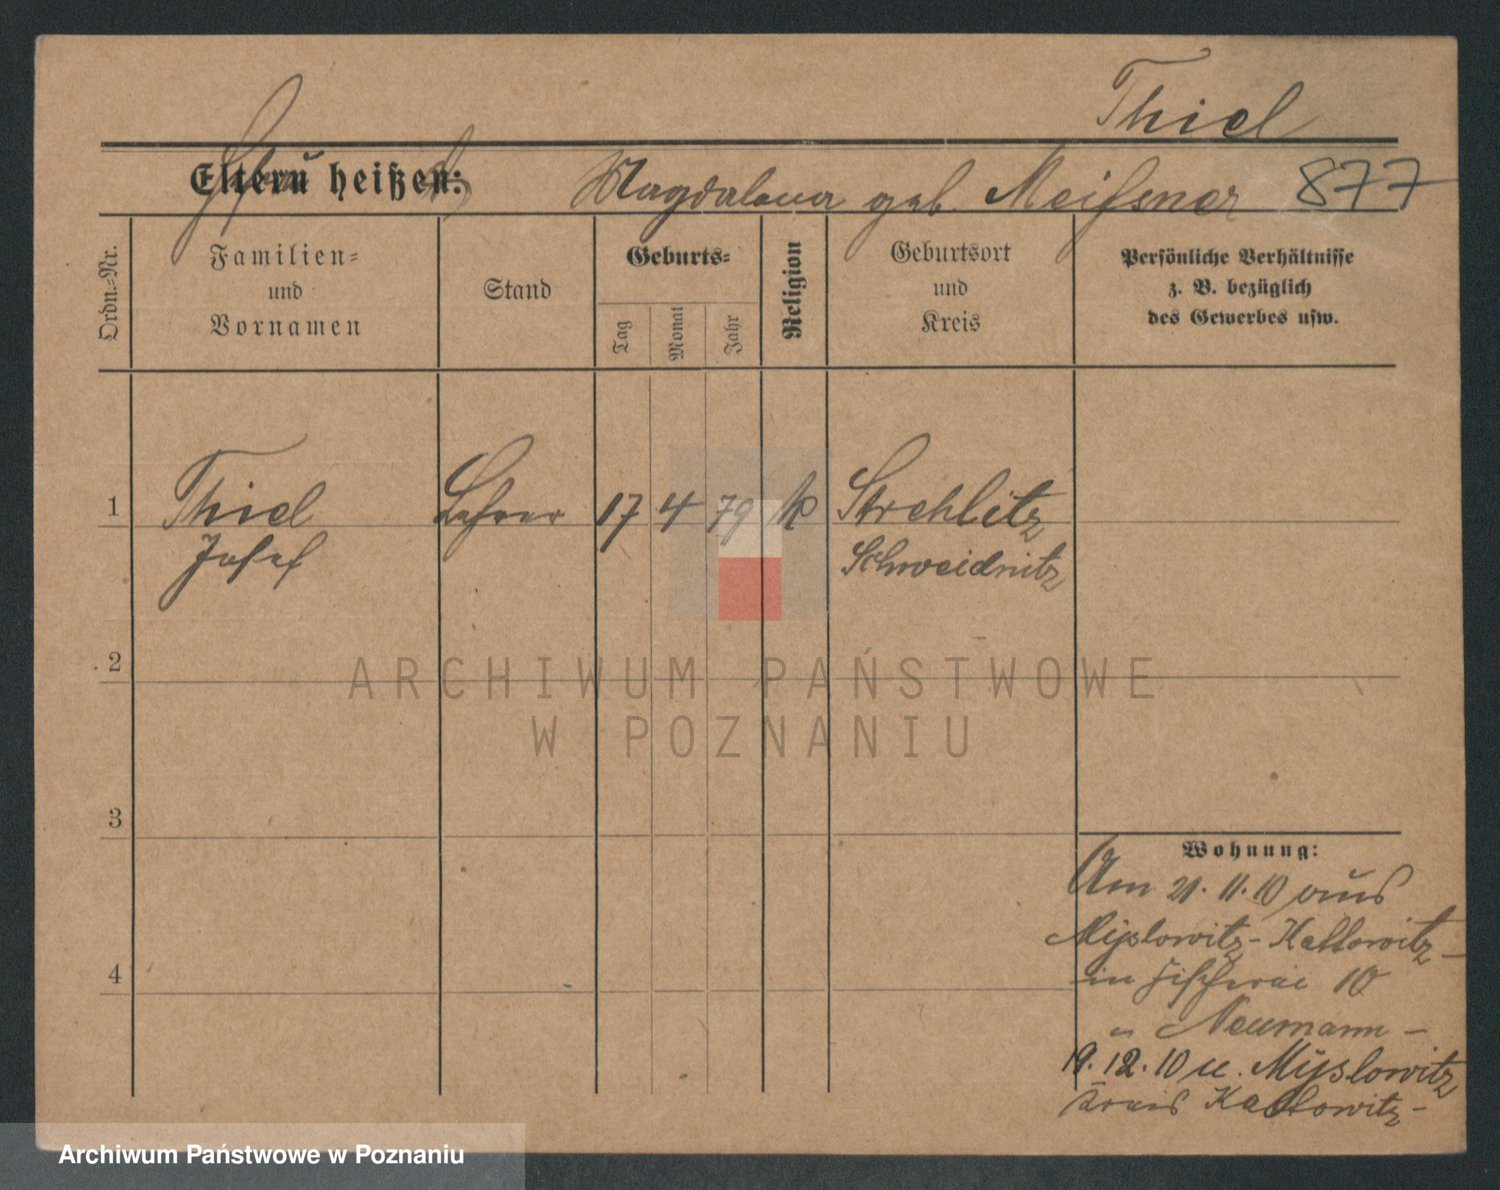 Thiel
Eltern heißen: Magdalena geb. Meißner 877
Ordn.-Nr.
Familien-
und
Vornamen
Stand
Geburts-
Tag
Monat
Jahr
Religion
Geburtsort
und
Kreis
Persönliche Verhältnisse
z. B. bezüglich
des Gewerbes usw.
1 Thiel Lehrer 17 4 79 k Strehlitz
Josef Schweidnitz
2
3
4
Wohnung:
Am 21. 11. 10 aus
Myslowitz - Kattowitz -
in Fischerei 10
Neumann -
19. 12. 10 n. Myslowitz
Kreis Kattowitz -
ARCHIWUM PAŃSTWOWE
W POZNANIU
Archiwum Państwowe w Poznaniu